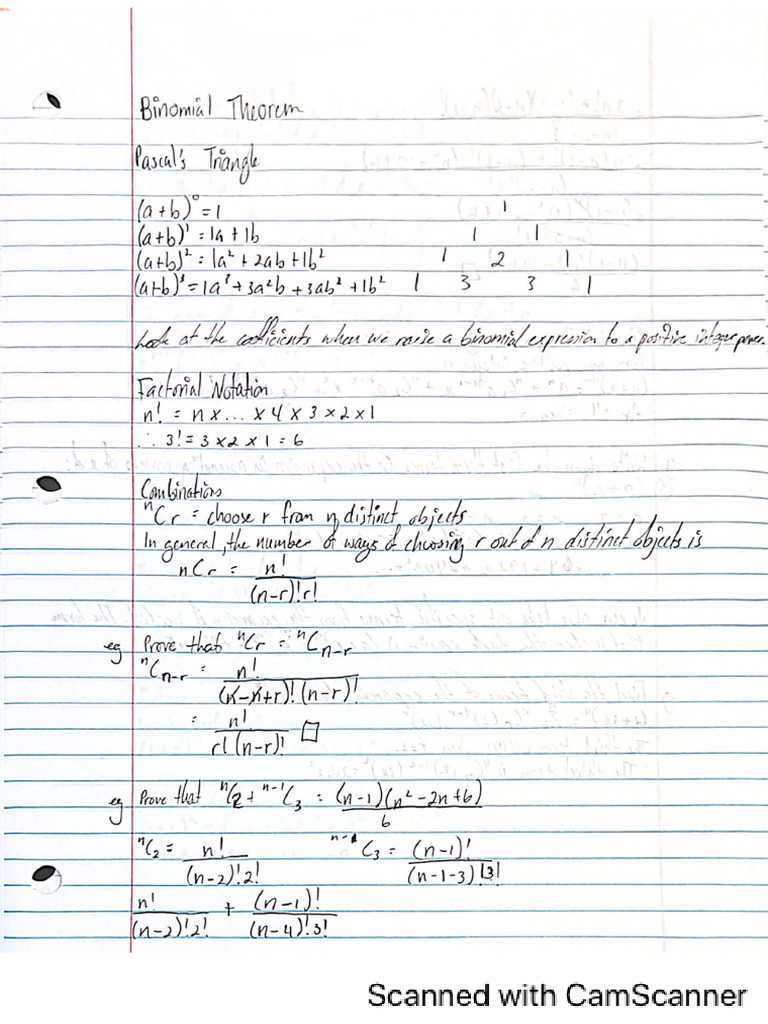 Binomial Theorem
Pascal's Triangle
(a+b)⁰ = 1 1
(a+b)¹ = 1a + 1b 1 1
(a+b)² = 1a² + 2ab + 1b² 1 2 1
(a+b)³ = 1a³ + 3a²b + 3ab² + 1b² 1 3 3 1
Look at the coefficients when we raise a binomial expression to a positive integer power.
Factorial Notation
n! = n x ... x 4 x 3 x 2 x 1
∴ 3! = 3 x 2 x 1 = 6
Combinations
ⁿCr = choose r from n distinct objects
In general, the number of ways of choosing r out of n distinct objects is
nCr = n! / (n-r)!r!
eg Prove that ⁿCr = ⁿC_{n-r}
ⁿC_{n-r} = n! / (n-n+r)!(n-r)!
= n! / r!(n-r)! □
eg Prove that ⁿC2 + ⁿ⁻¹C3 = (n-1)(n²-2n+6) / 6
ⁿC2 = n! / (n-2)!2! ⁿ⁻¹C3 = (n-1)! / (n-1-3)!3!
n! / (n-2)!2! + (n-1)! / (n-4)!3!
Scanned with CamScanner